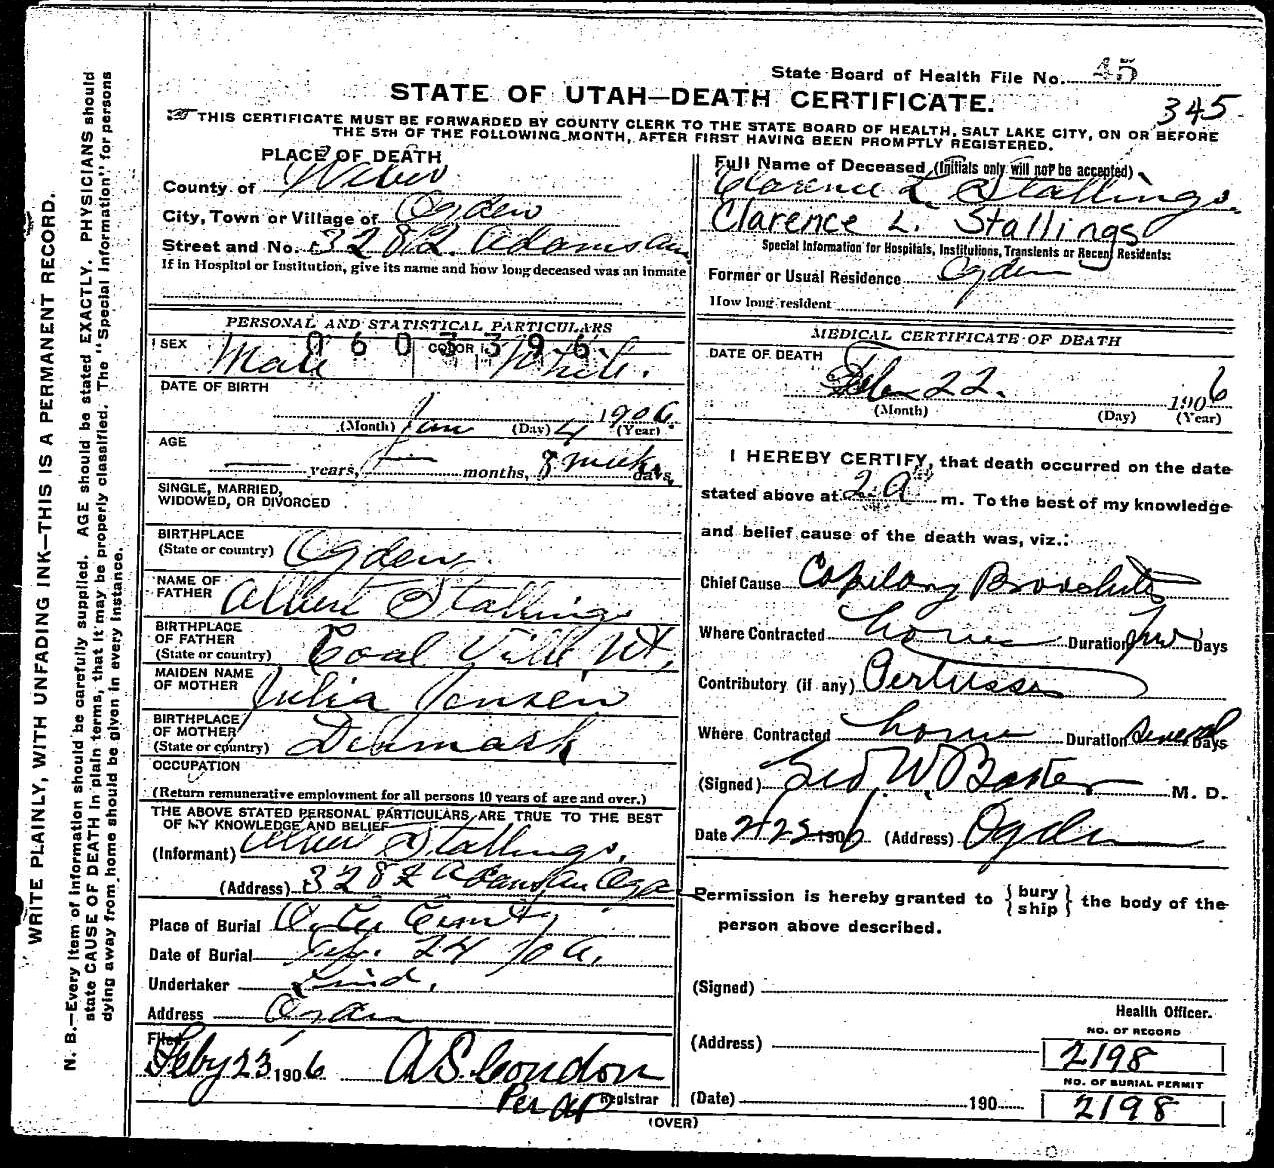 WRITE PLAINLY, WITH UNFADING INK—THIS IS A PERMANENT RECORD.
N. B.—Every item of information should be carefully supplied. AGE should be stated EXACTLY. PHYSICIANS should
state CAUSE OF DEATH in plain terms, that it may be properly classified. The "Special Information" for persons
dying away from home should be given in every instance.
State Board of Health File No. 45
STATE OF UTAH—DEATH CERTIFICATE.
345
THIS CERTIFICATE MUST BE FORWARDED BY COUNTY CLERK TO THE STATE BOARD OF HEALTH, SALT LAKE CITY, ON OR BEFORE
THE 5TH OF THE FOLLOWING MONTH, AFTER FIRST HAVING BEEN PROMPTLY REGISTERED.
PLACE OF DEATH
County of Weber
City, Town or Village of Ogden
Street and No. 3282 Adams Av
If in Hospital or Institution, give its name and how long deceased was an inmate
PERSONAL AND STATISTICAL PARTICULARS
0603396
SEX Male COLOR White.
DATE OF BIRTH
(Month) Jan (Day) 4 1906. (Year)
AGE
— years, — months, 7 weeks days,
SINGLE, MARRIED,
WIDOWED, OR DIVORCED
BIRTHPLACE
(State or country) Ogden.
NAME OF
FATHER Albert Stallings
BIRTHPLACE
OF FATHER
(State or country) Coal Ville, Ut,
MAIDEN NAME
OF MOTHER Julia Jensen
BIRTHPLACE
OF MOTHER
(State or country) Denmark
OCCUPATION
(Return remunerative employment for all persons 10 years of age and over.)
THE ABOVE STATED PERSONAL PARTICULARS ARE TRUE TO THE BEST
OF MY KNOWLEDGE AND BELIEF
(Informant) Albert Stallings,
(Address) 3282 Adams Av Ogd
Place of Burial City Cemty
Date of Burial 24 06,
Undertaker
Address Ogden
Filed
Feby 23 1906 A.S. Condon
Per Registrar
Full Name of Deceased (Initials only will not be accepted)
Clarence L. Stallings.
Clarence L. Stallings
Special Information for Hospitals, Institutions, Transients or Recent Residents:
Former or Usual Residence Ogden
How long resident
MEDICAL CERTIFICATE OF DEATH
DATE OF DEATH
Feb 22. 1906
(Month) (Day) (Year)
I HEREBY CERTIFY, that death occurred on the date
stated above at 2 a m. To the best of my knowledge
and belief cause of the death was, viz.:
Chief Cause Capillary Bronchitis
Where Contracted home Duration few Days
Contributory (if any) Pertussis
Where Contracted home Duration several Days
(Signed) Geo. W. Baker M. D.
Date 2/23 1906 (Address) Ogden
Permission is hereby granted to { bury ship } the body of the
person above described.
(Signed)
Health Officer.
(Address)
NO. OF RECORD
2198
NO. OF BURIAL PERMIT
(Date) 190
2198
(OVER)